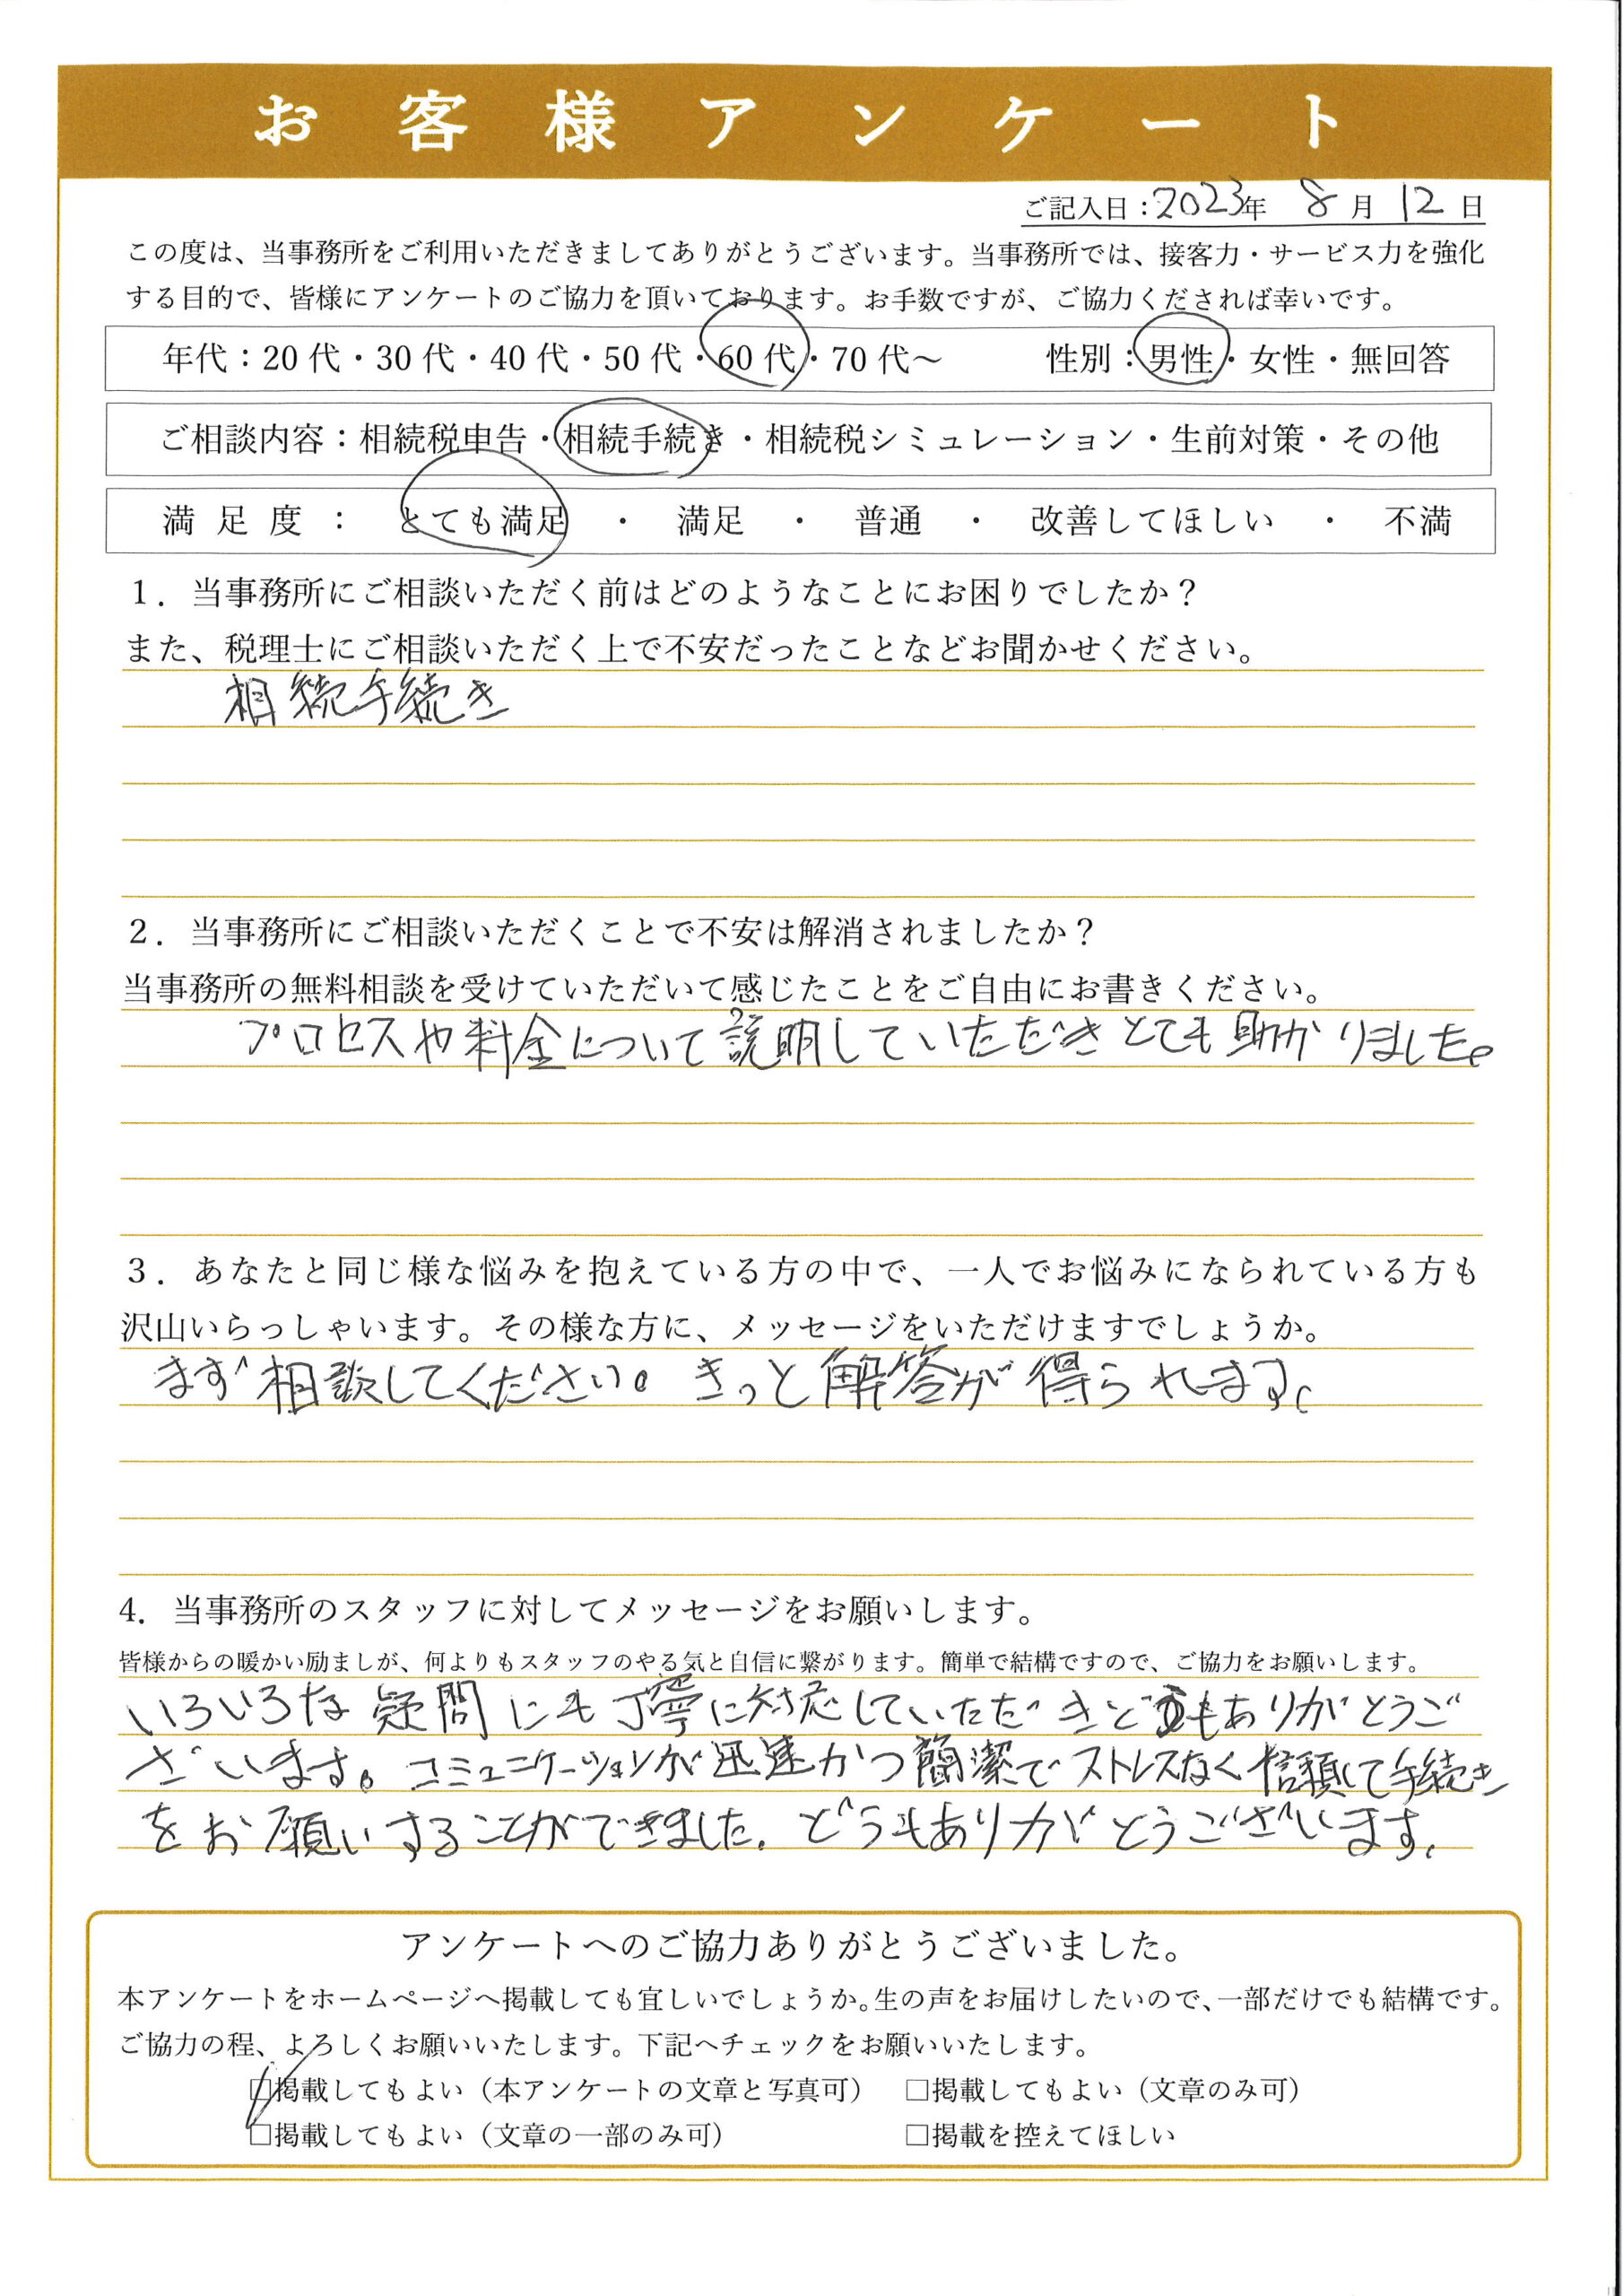 お客様アンケート
ご記入日：2023年 8月 12日
この度は、当事務所をご利用いただきましてありがとうございます。当事務所では、接客力・サービス力を強化
する目的で、皆様にアンケートのご協力を頂いております。お手数ですが、ご協力くだされば幸いです。
年代：20代・30代・40代・50代・60代・70代～　性別：男性・女性・無回答
ご相談内容：相続税申告・相続手続き・相続税シミュレーション・生前対策・その他
満足度：　とても満足　・　満足　・　普通　・　改善してほしい　・　不満
1．当事務所にご相談いただく前はどのようなことにお困りでしたか？
また、税理士にご相談いただく上で不安だったことなどお聞かせください。
相続手続き
2．当事務所にご相談いただくことで不安は解消されましたか？
当事務所の無料相談を受けていただいて感じたことをご自由にお書きください。
プロセスや料金について説明していただきとても助かりました。
3．あなたと同じ様な悩みを抱えている方の中で、一人でお悩みになられている方も
沢山いらっしゃいます。その様な方に、メッセージをいただけますでしょうか。
まず相談してください。きっと解答が得られます。
4．当事務所のスタッフに対してメッセージをお願いします。
皆様からの暖かい励ましが、何よりもスタッフのやる気と自信に繋がります。簡単で結構ですので、ご協力をお願いします。
いろいろな疑問にも丁寧に対応していただきどうもありがとうご
ざいます。コミュニケーションが迅速かつ簡潔でストレスなく信頼して手続き
をお願いすることができました。どうもありがとうございます。
アンケートへのご協力ありがとうございました。
本アンケートをホームページへ掲載しても宜しいでしょうか。生の声をお届けしたいので、一部だけでも結構です。
ご協力の程、よろしくお願いいたします。下記へチェックをお願いいたします。
☑掲載してもよい（本アンケートの文章と写真可）　□掲載してもよい（文章のみ可）
□掲載してもよい（文章の一部のみ可）　□掲載を控えてほしい